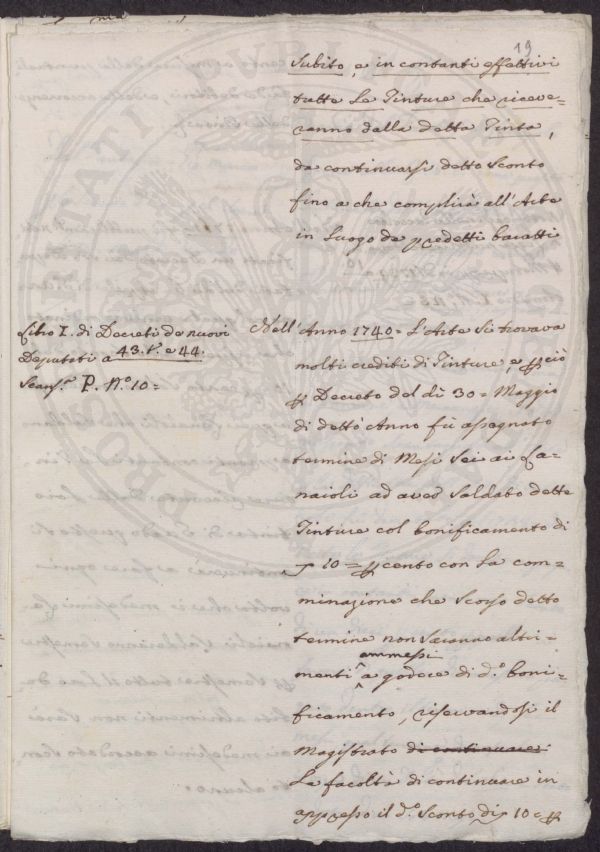 19
subito, e in contanti effettivi
tutte le Tinture che riceve-
ranno dalla detta Tinta,
da continuarsi detto Sconto
fino a che complirà all'Arte
in luogo de predetti baratti
Libro I. di Decreti de nuovi
Deputati a 43. t.º e 44.
Scans.ª P. N.º 10=
Nell'Anno 1740= L'Arte si trovava
molti crediti di Tinture, e p ciò
p Decreto del dì 30= Maggio
di detto Anno fù assegnato
termine di Mesi sei ai La-
naioli ad aver saldato dette
Tinture col bonificamento di
10= p cento con la com-
minazione che scorso detto
termine non saranno altri-
menti ammessi a godere di d.º boni-
ficamento, riservandosi il
Magistrato di continuare
La facoltà di continuare in
appresso il d.º Sconto di 10= p